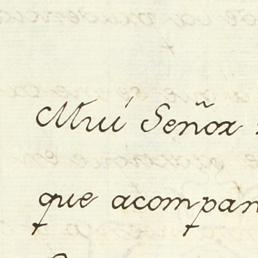 Muí Señor
que acompan